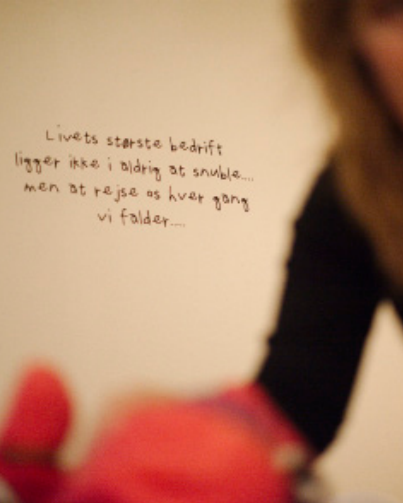 Livets største bedrift
ligger ikke i aldrig at snuble....
men at rejse os hver gang
vi falder....